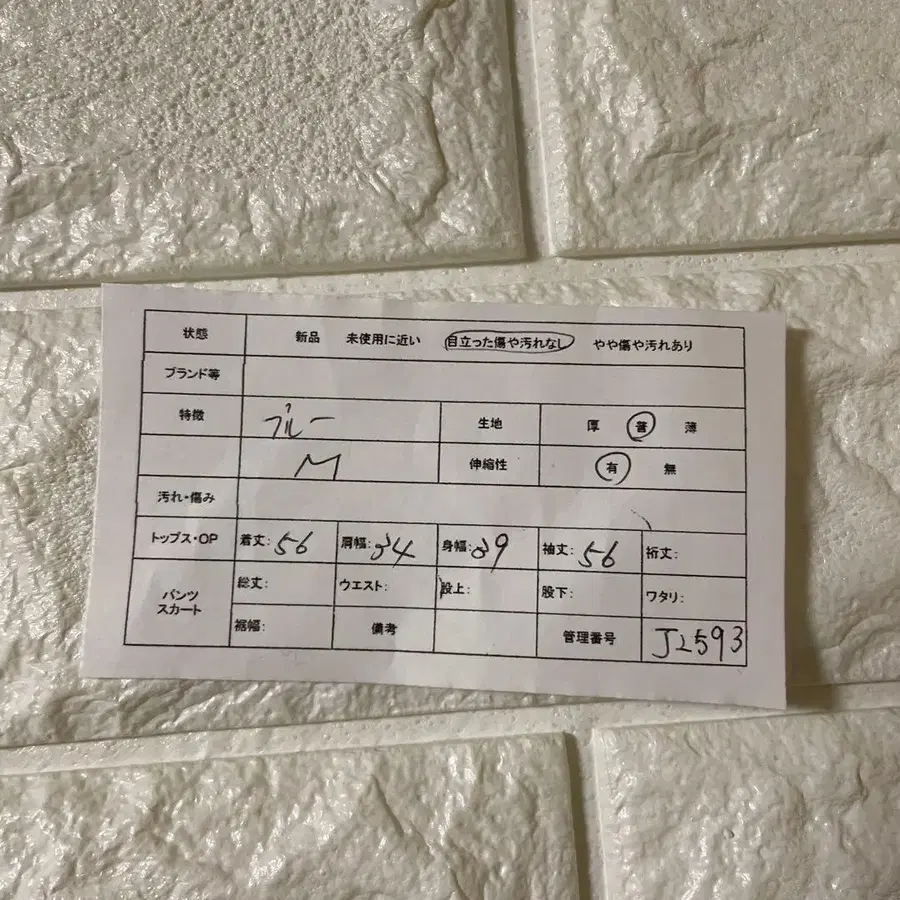 状態 新品 未使用に近い 目立った傷や汚れなし やや傷や汚れあり
ブランド等
特徴 ブルー 生地 厚 普 薄
M 伸縮性 有 無
汚れ・傷み
トップス・OP 着丈: 56 肩幅: 34 身幅: 39 袖丈: 56 裄丈:
パンツ スカート 総丈: ウエスト: 股上: 股下: ワタリ:
裾幅: 備考 管理番号 J2593